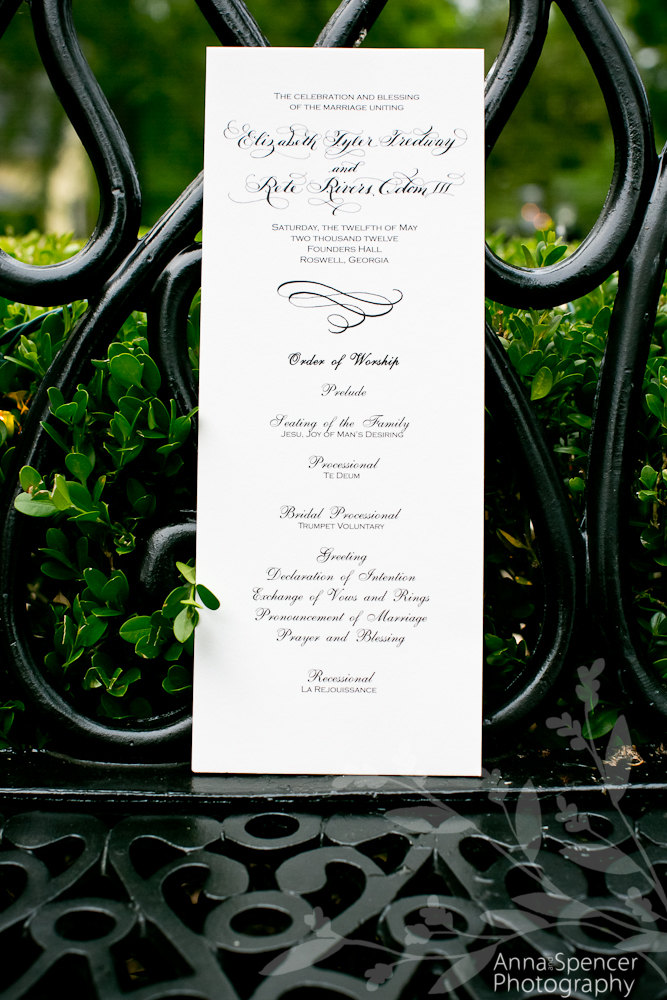 The celebration and blessing
of the marriage uniting
Elizabeth Tyler Tredway
and
Rete Rivers Odom III
Saturday, the twelfth of May
two thousand twelve
Founders Hall
Roswell, Georgia
Order of Worship
Prelude
Seating of the Family
Jesu, Joy of Man's Desiring
Processional
Te Deum
Bridal Processional
Trumpet Voluntary
Greeting
Declaration of Intention
Exchange of Vows and Rings
Pronouncement of Marriage
Prayer and Blessing
Recessional
La Rejouissance
Anna and Spencer
Photography